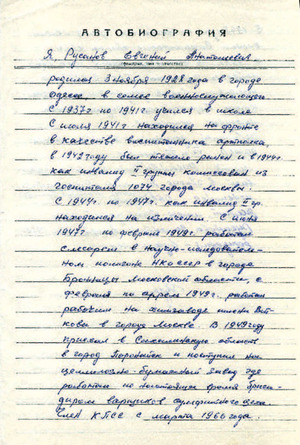 АВТОБИОГРАФИЯ
Я, Русанов Евгений Анатольевич
(фамилия, имя и отчество)
родился 3 ноября 1928 года в городе
Одесса, в семье военнослужащего
С 1937г по 1941г учился в школе
С июля 1941г находился на фронте
в качестве воспитанника
в 1942 году был тяжело ранен и в 1944г
как инвалид II группы комиссован из
госпиталя 1074 города Москвы.
С 1944г по 1947г. как инвалид II гр.
находился на излечении. С июня
1947г по февраль 1949г работал
слесарем в научно-исследователь-
ном полигоне НКО СССР в городе
Бронницы Московской области, с
февраля по апрель 1949г. работал
рабочим на химзаводе имени Вой-
кова в городе Москве. В 1949 году
приехал в Сахалинскую область
в город Поронайск и поступил на
целлюлозно-бумажный завод где
работаю по настоящее время брига-
диром варщиков сульфитного цеха.
Член КПСС с марта 1960 года.